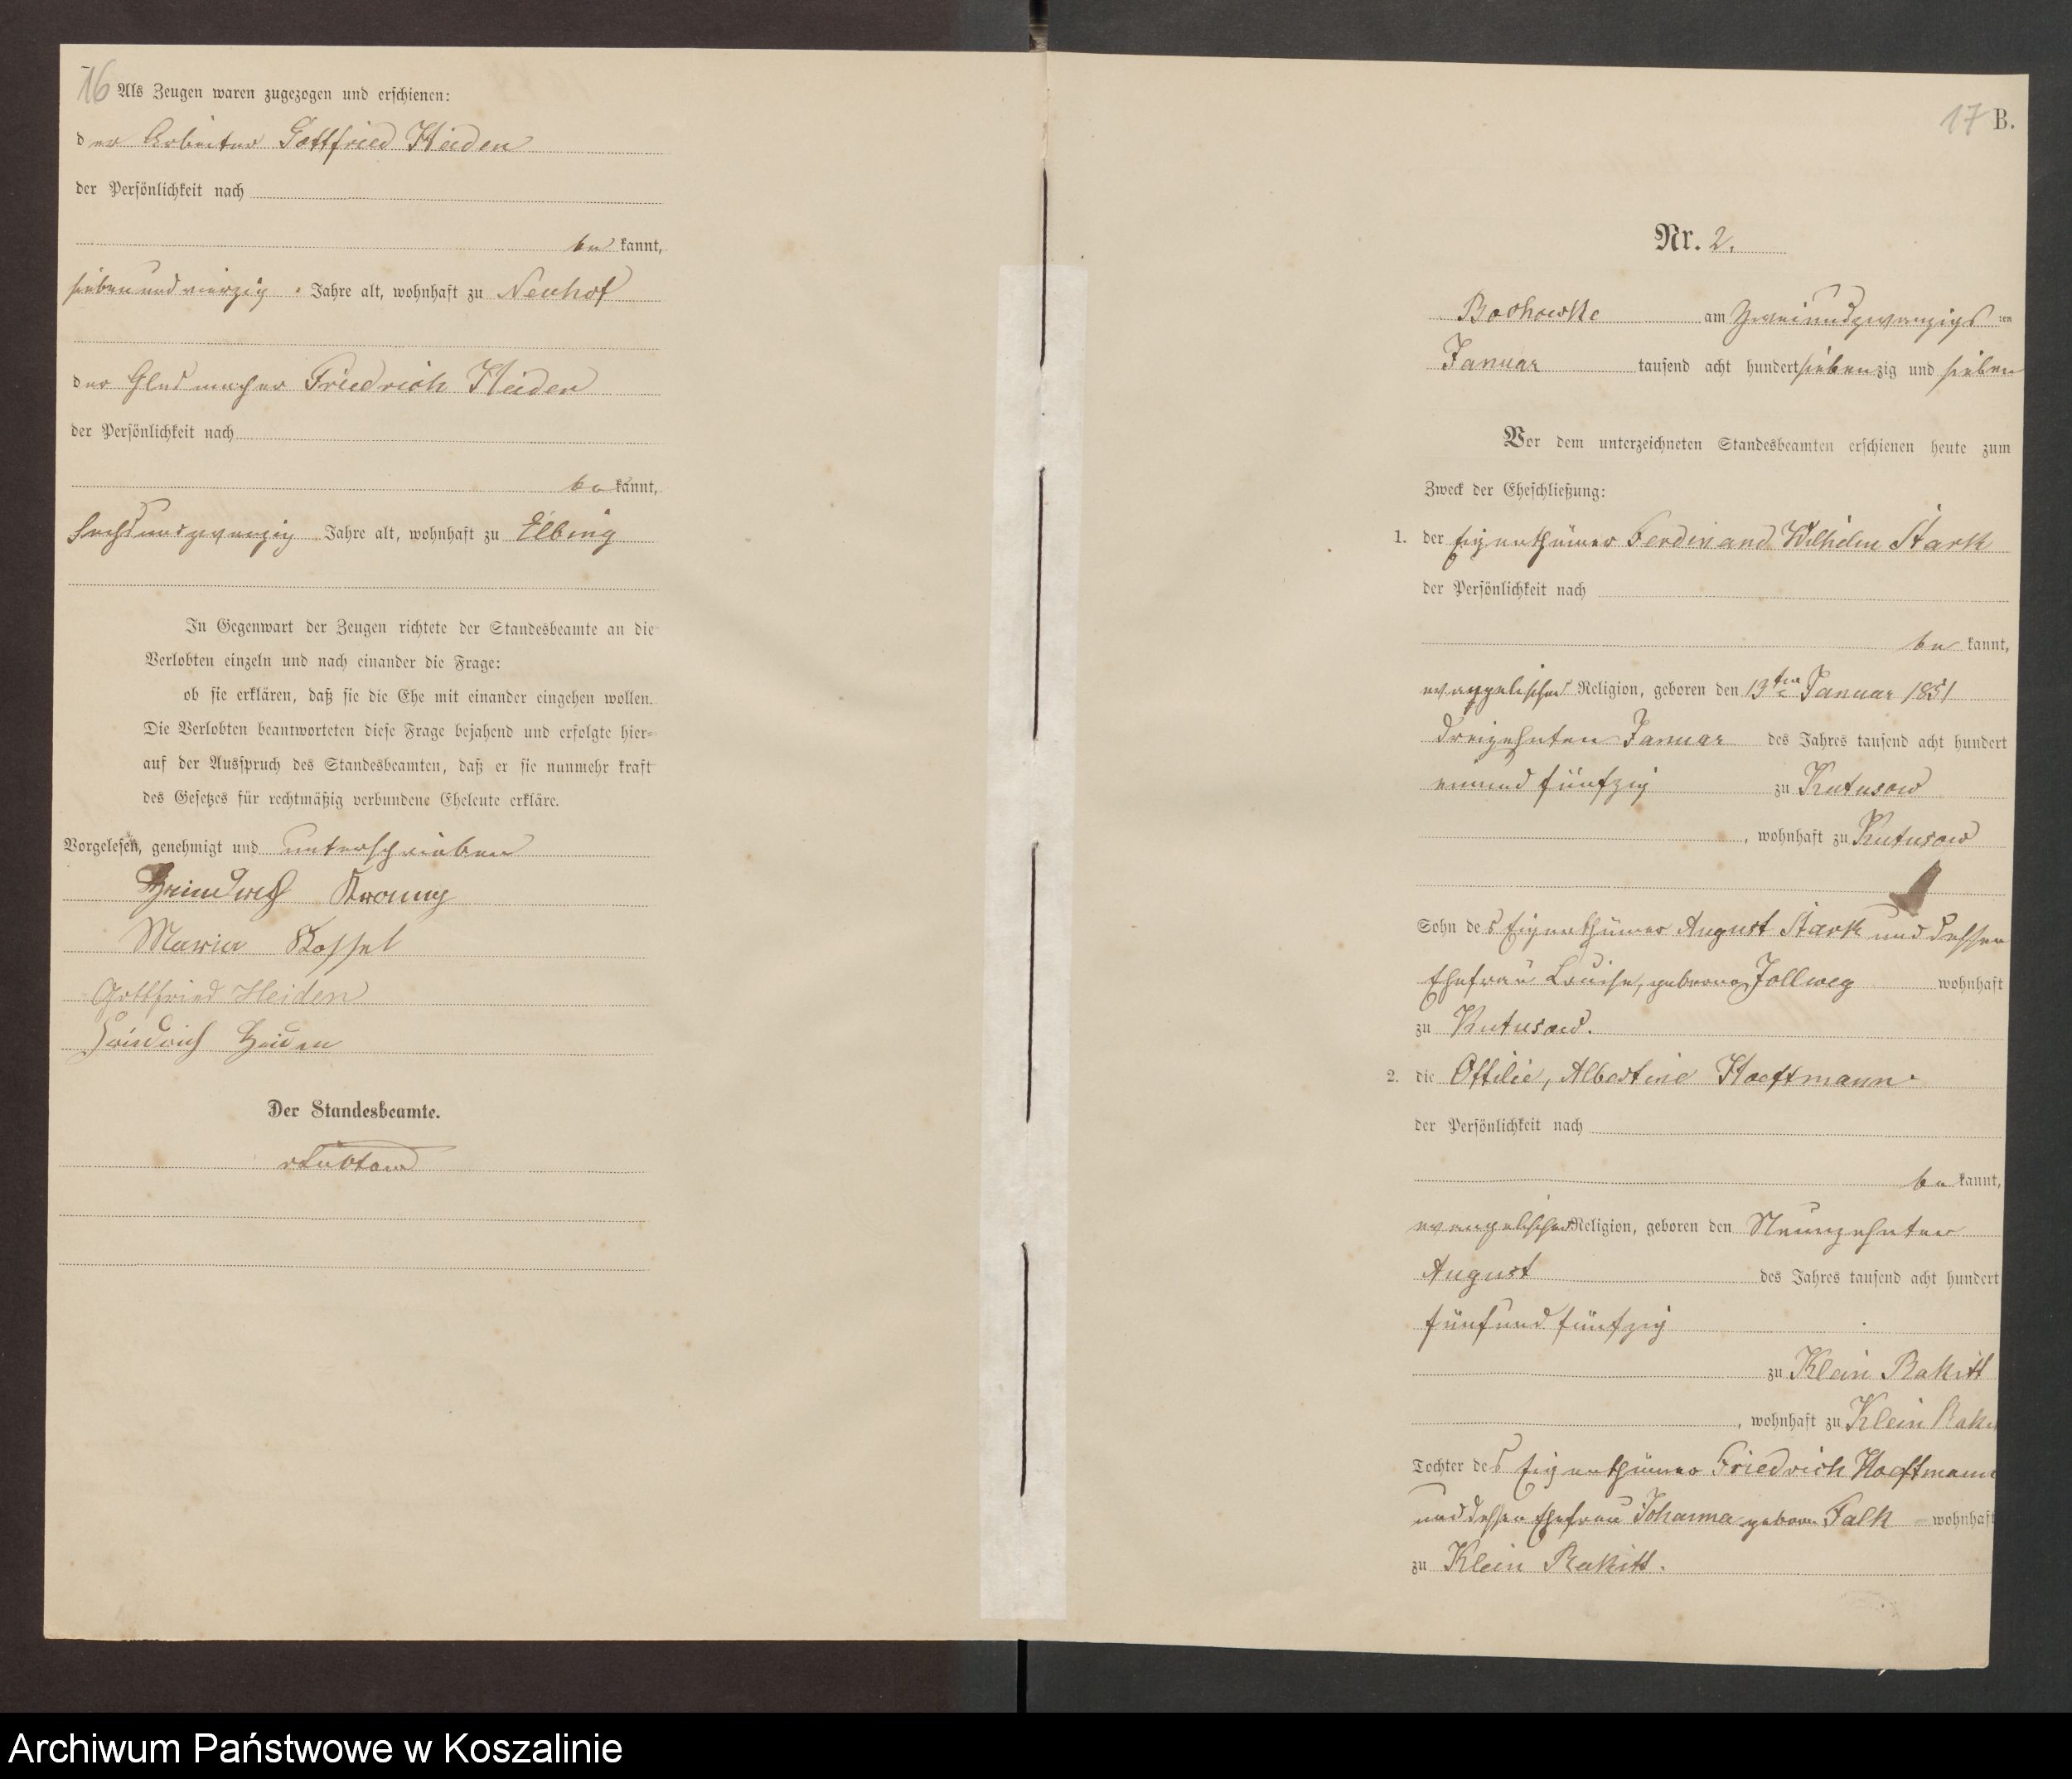 16
Als Zeugen waren zugezogen und erschienen:
der Arbeiter Gottfried Heiden
der Persönlichkeit nach
be kannt,
siebenundvierzig Jahre alt, wohnhaft zu Neuhof
der Glasmacher Friedrich Heiden
der Persönlichkeit nach
be kannt,
sechsundzwanzig Jahre alt, wohnhaft zu Elbing
In Gegenwart der Zeugen richtete der Standesbeamte an die
Verlobten einzeln und nach einander die Frage:
ob sie erklären, daß sie die Ehe mit einander eingehen wollen.
Die Verlobten beantworteten diese Frage bejahend und erfolgte hier-
auf der Ausspruch des Standesbeamten, daß er sie nunmehr kraft
des Gesetzes für rechtmäßig verbundene Eheleute erkläre.
Vorgelesen, genehmigt und unterschrieben
Maria Kossel
Gottfried Heiden
Friedrich Heiden
Der Standesbeamte.
17 B.
Nr. 2.
Bochowke am zweiundzwanzigs ten
Januar tausend acht hundert siebenzig und sieben
Vor dem unterzeichneten Standesbeamten erschienen heute zum
Zweck der Eheschließung:
1. der Eigenthümer Ferdinand Wilhelm Stark
der Persönlichkeit nach
be kannt,
evangelischer Religion, geboren den 13ten Januar 1851
dreizehnten Januar des Jahres tausend acht hundert
einund fünfzig zu Kutusow
, wohnhaft zu Kutusow
Sohn des Eigenthümer August Stark und dessen
Ehefrau Louise, geborne Jollweg wohnhaft
zu Kutusow.
2. die Ottilie, Albertine Hoeftmann
der Persönlichkeit nach
be kannt,
evangelischer Religion, geboren den Neunzehnten
August des Jahres tausend acht hundert
fünfund fünfzig
zu Klein Rakitt
, wohnhaft zu Klein Raki
Tochter des Eigenthümer Friedrich Hoeftmann
und dessen Ehefrau Johanna geborne Falk wohnhaft
zu Klein Rakitt.
Archiwum Państwowe w Koszalinie